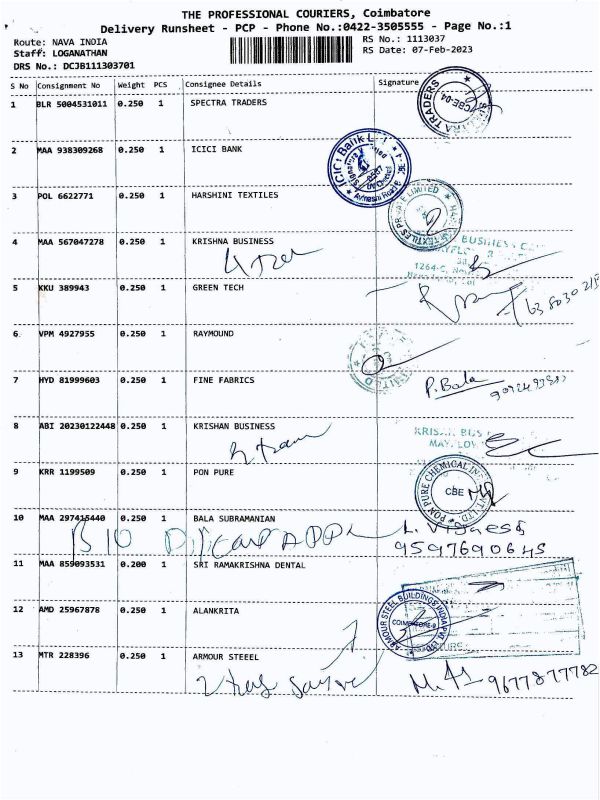 THE PROFESSIONAL COURIERS, Coimbatore
Delivery Runsheet - PCP - Phone No.:0422-3505555 - Page No.:1
Route: NAVA INDIA RS No.: 1113037
Staff: LOGANATHAN RS Date: 07-Feb-2023
DRS No.: DCJB111303701
S No Consignment No Weight PCS Consignee Details Signature
1 BLR 5004531011 0.250 1 SPECTRA TRADERS
TRADERS CBE-04
2 MAA 938309268 0.250 1 ICICI BANK
ICICI Bank
3 POL 6622771 0.250 1 HARSHINI TEXTILES
TEXTILES PRIVATE LIMITED
4 MAA 567047278 0.250 1 KRISHNA BUSINESS
BUSINESS
5 KKU 389943 0.250 1 GREEN TECH
6 VPM 4927955 0.250 1 RAYMOUND
7 HYD 81999603 0.250 1 FINE FABRICS
P. Bala
8 ABI 20230122448 0.250 1 KRISHAN BUSINESS
9 KRR 1199509 0.250 1 PON PURE
PON PURE CHEMICAL CBE
10 MAA 297415440 0.250 1 BALA SUBRAMANIAN
9597690645
11 MAA 859093531 0.200 1 SRI RAMAKRISHNA DENTAL
12 AMD 25967878 0.250 1 ALANKRITA
ARMOUR STEEL BUILDINGS INDIA PVT LTD
13 MTR 228396 0.250 1 ARMOUR STEEEL
9677877782